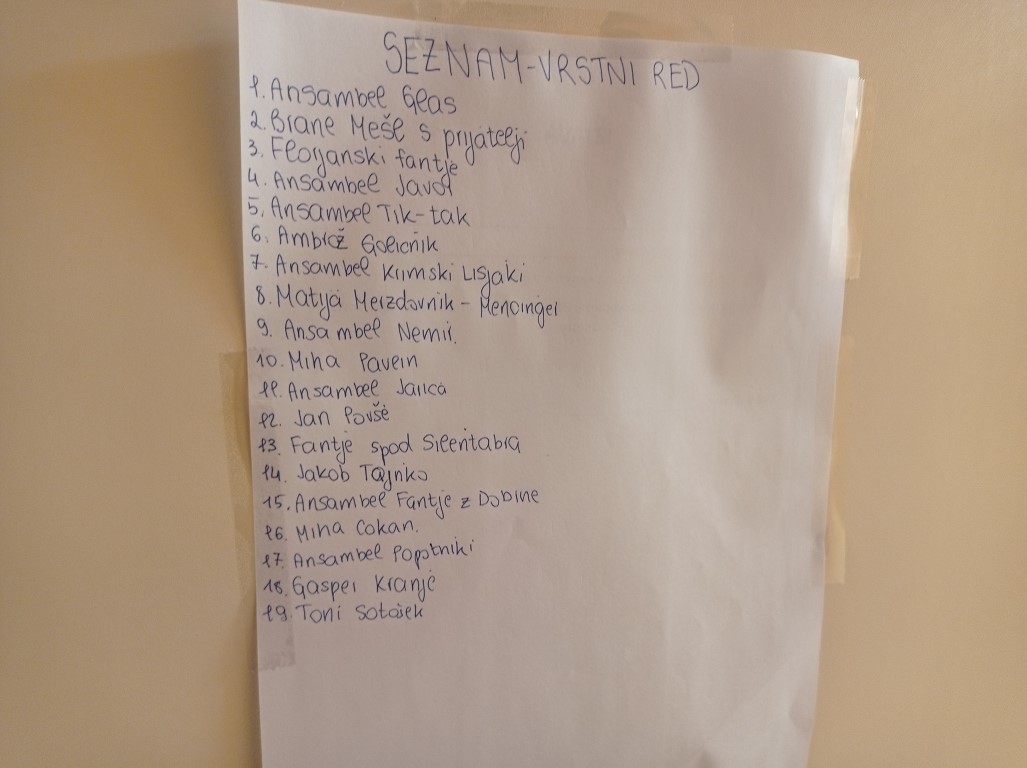 SEZNAM-VRSTNI RED
1. Ansambel Glas
2. Brane Mešl s prijatelji
3. Flosjanski fantje
4. Ansambel Javor
5. Ansambel Tik-tak
6. Ambrož Golicnik
7. Ansambel Krimski Lisjaki
8. Matija Merzdovnik - Mencinger
9. Ansambel Nemir.
10. Miha Pavlin
11. Ansambel Jarica
12. Jan Povše
13. Fantje spod Silentabra
14. Jakob Tajnko
15. Ansambel Fantje z Dobine
16. Miha Cokan.
17. Ansambel Popotniki
18. Gasper Kranjc
19. Toni Sotošek